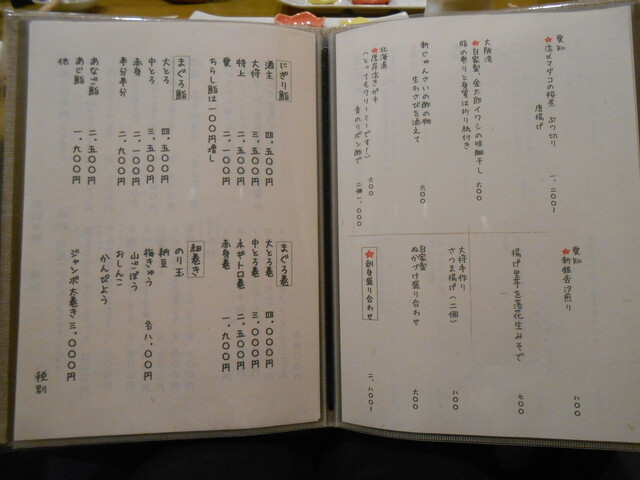 愛知
★活〆マダコの桜煮 ぶつ切り
唐揚げ 一、二〇〇〜
大阪湾
★自家製、金太郎イワシの味醂干し
脂の乗りと身質は折り紙付き 六〇〇
新じゅんさいの酢の物
生わさびを添えて 六〇〇
北海道
★厚岸活きガキ
(とってもクリーミーです!)
昔のりポン酢で 二個一、〇〇〇
愛知
★新銀杏汐煎り 八〇〇
揚げ里芋を落花生みそで 七〇〇
大将手作り
さつま揚げ(二個) 八〇〇
自家製
ぬかづけ盛り合わせ 六〇〇
★刺身盛り合わせ 二、八〇〇〜
にぎり鮨
酒主 四、五〇〇円
大将 三、五〇〇円
特上 二、五〇〇円
愛 二、一〇〇円
ちらし鮨は一〇〇円増し
まぐろ鮨
大とろ 四、五〇〇円
中とろ 三、五〇〇円
赤身 二、一〇〇円
半分半分 二、九〇〇円
他
あなご鮨 二、五〇〇円
あじ鮨 一、九〇〇円
まぐろ巻
大とろ巻 四、〇〇〇円
中とろ巻 三、〇〇〇円
ネギトロ巻 二、五〇〇円
赤身巻 一、九〇〇円
細巻き
のり玉
納豆
梅きゅう 各八〇〇円
山ごぼう
おしんこ
かんぴょう
ジャンボ太巻き 三、〇〇〇円
税別